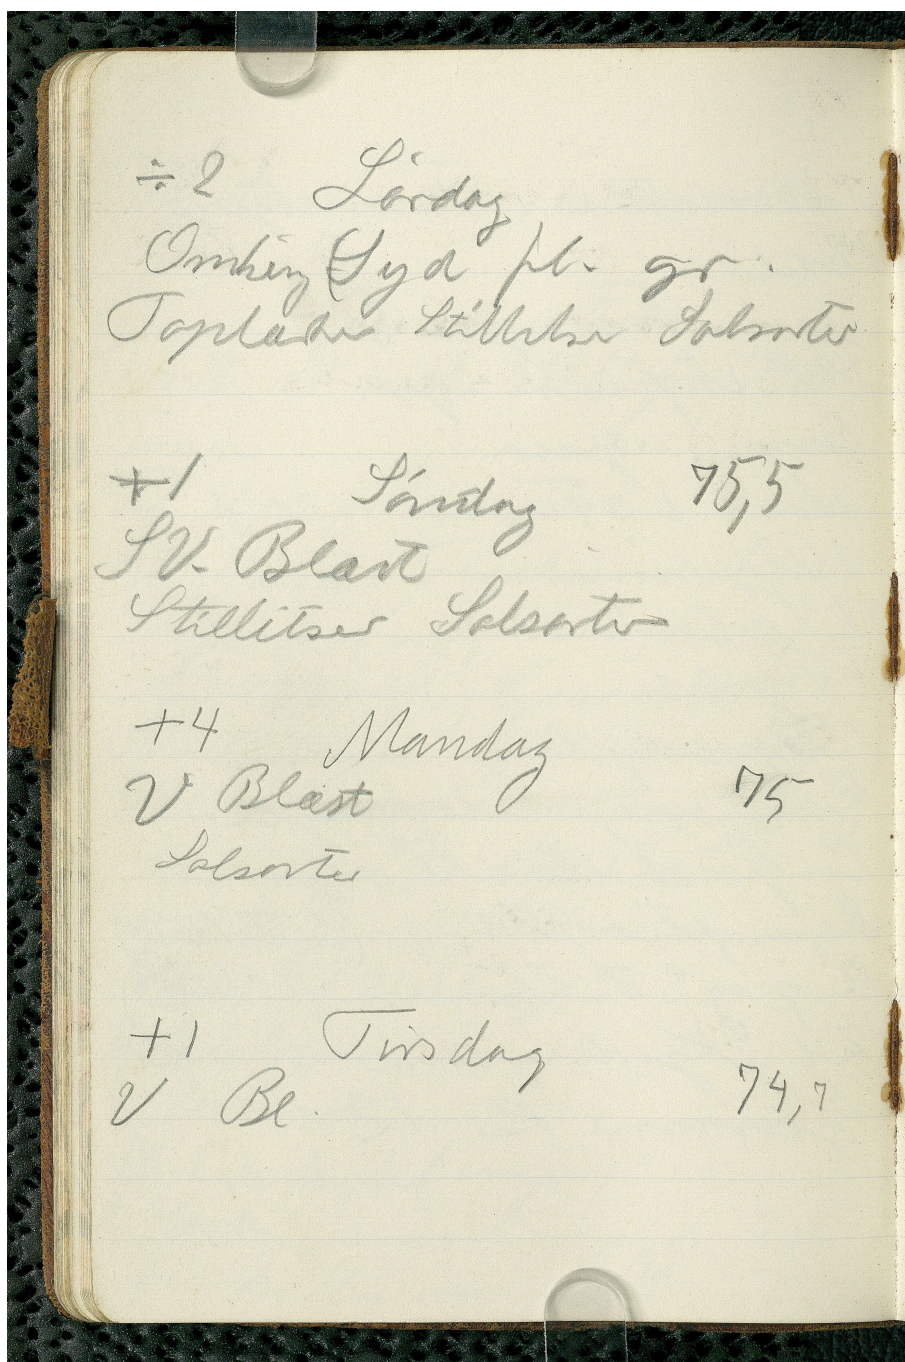 ÷2 Lørdag
Omkring Syd pl. gr.
Toplærker Stillitser Solsorter
+1 Søndag 75,5
SV. Blæst
Stillitser Solsorter
+4 Mandag
V Blæst 75
Solsorter
+1 Tirsdag
V Bl. 74,7